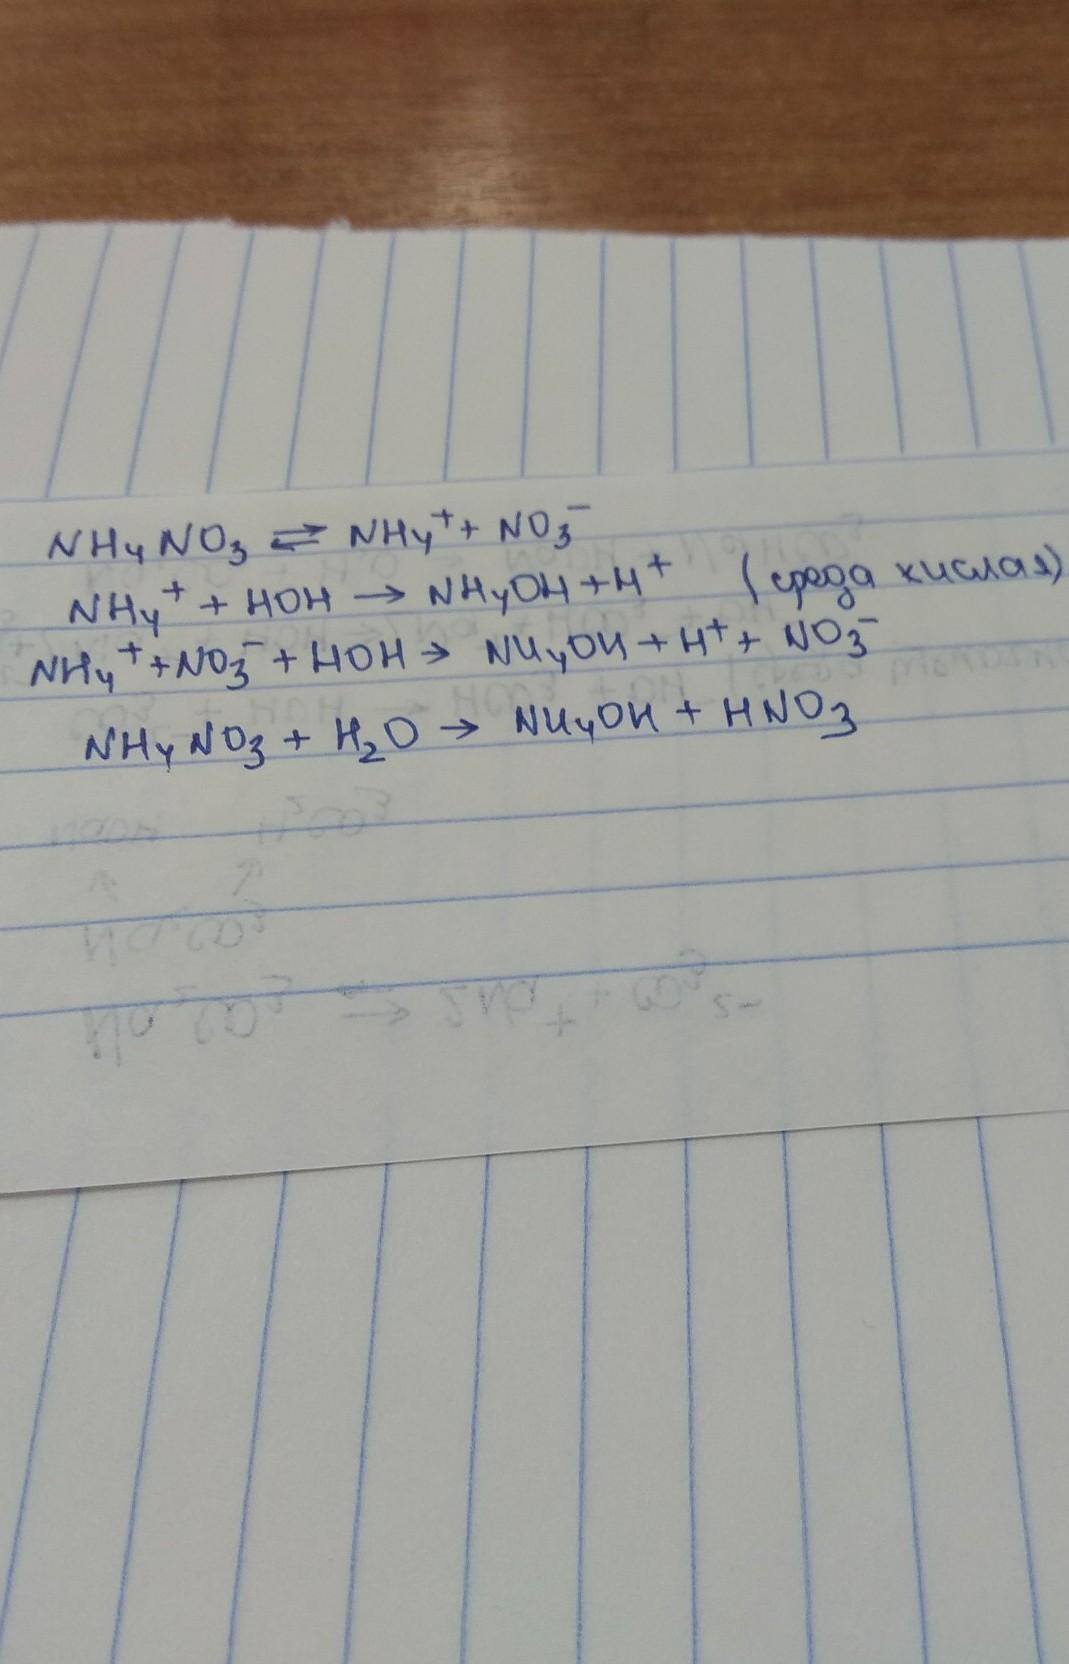 NH₄NO₃ ⇌ NH₄⁺ + NO₃⁻
NH₄⁺ + HOH → NH₄OH + H⁺ (среда кислая)
NH₄⁺ + NO₃⁻ + HOH → NH₄OH + H⁺ + NO₃⁻
NH₄NO₃ + H₂O → NH₄OH + HNO₃